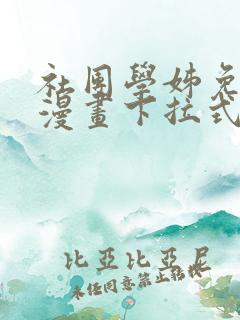 社團學姊免
漫畫下拉式
比亞比亞尼
未經同意禁止轉載